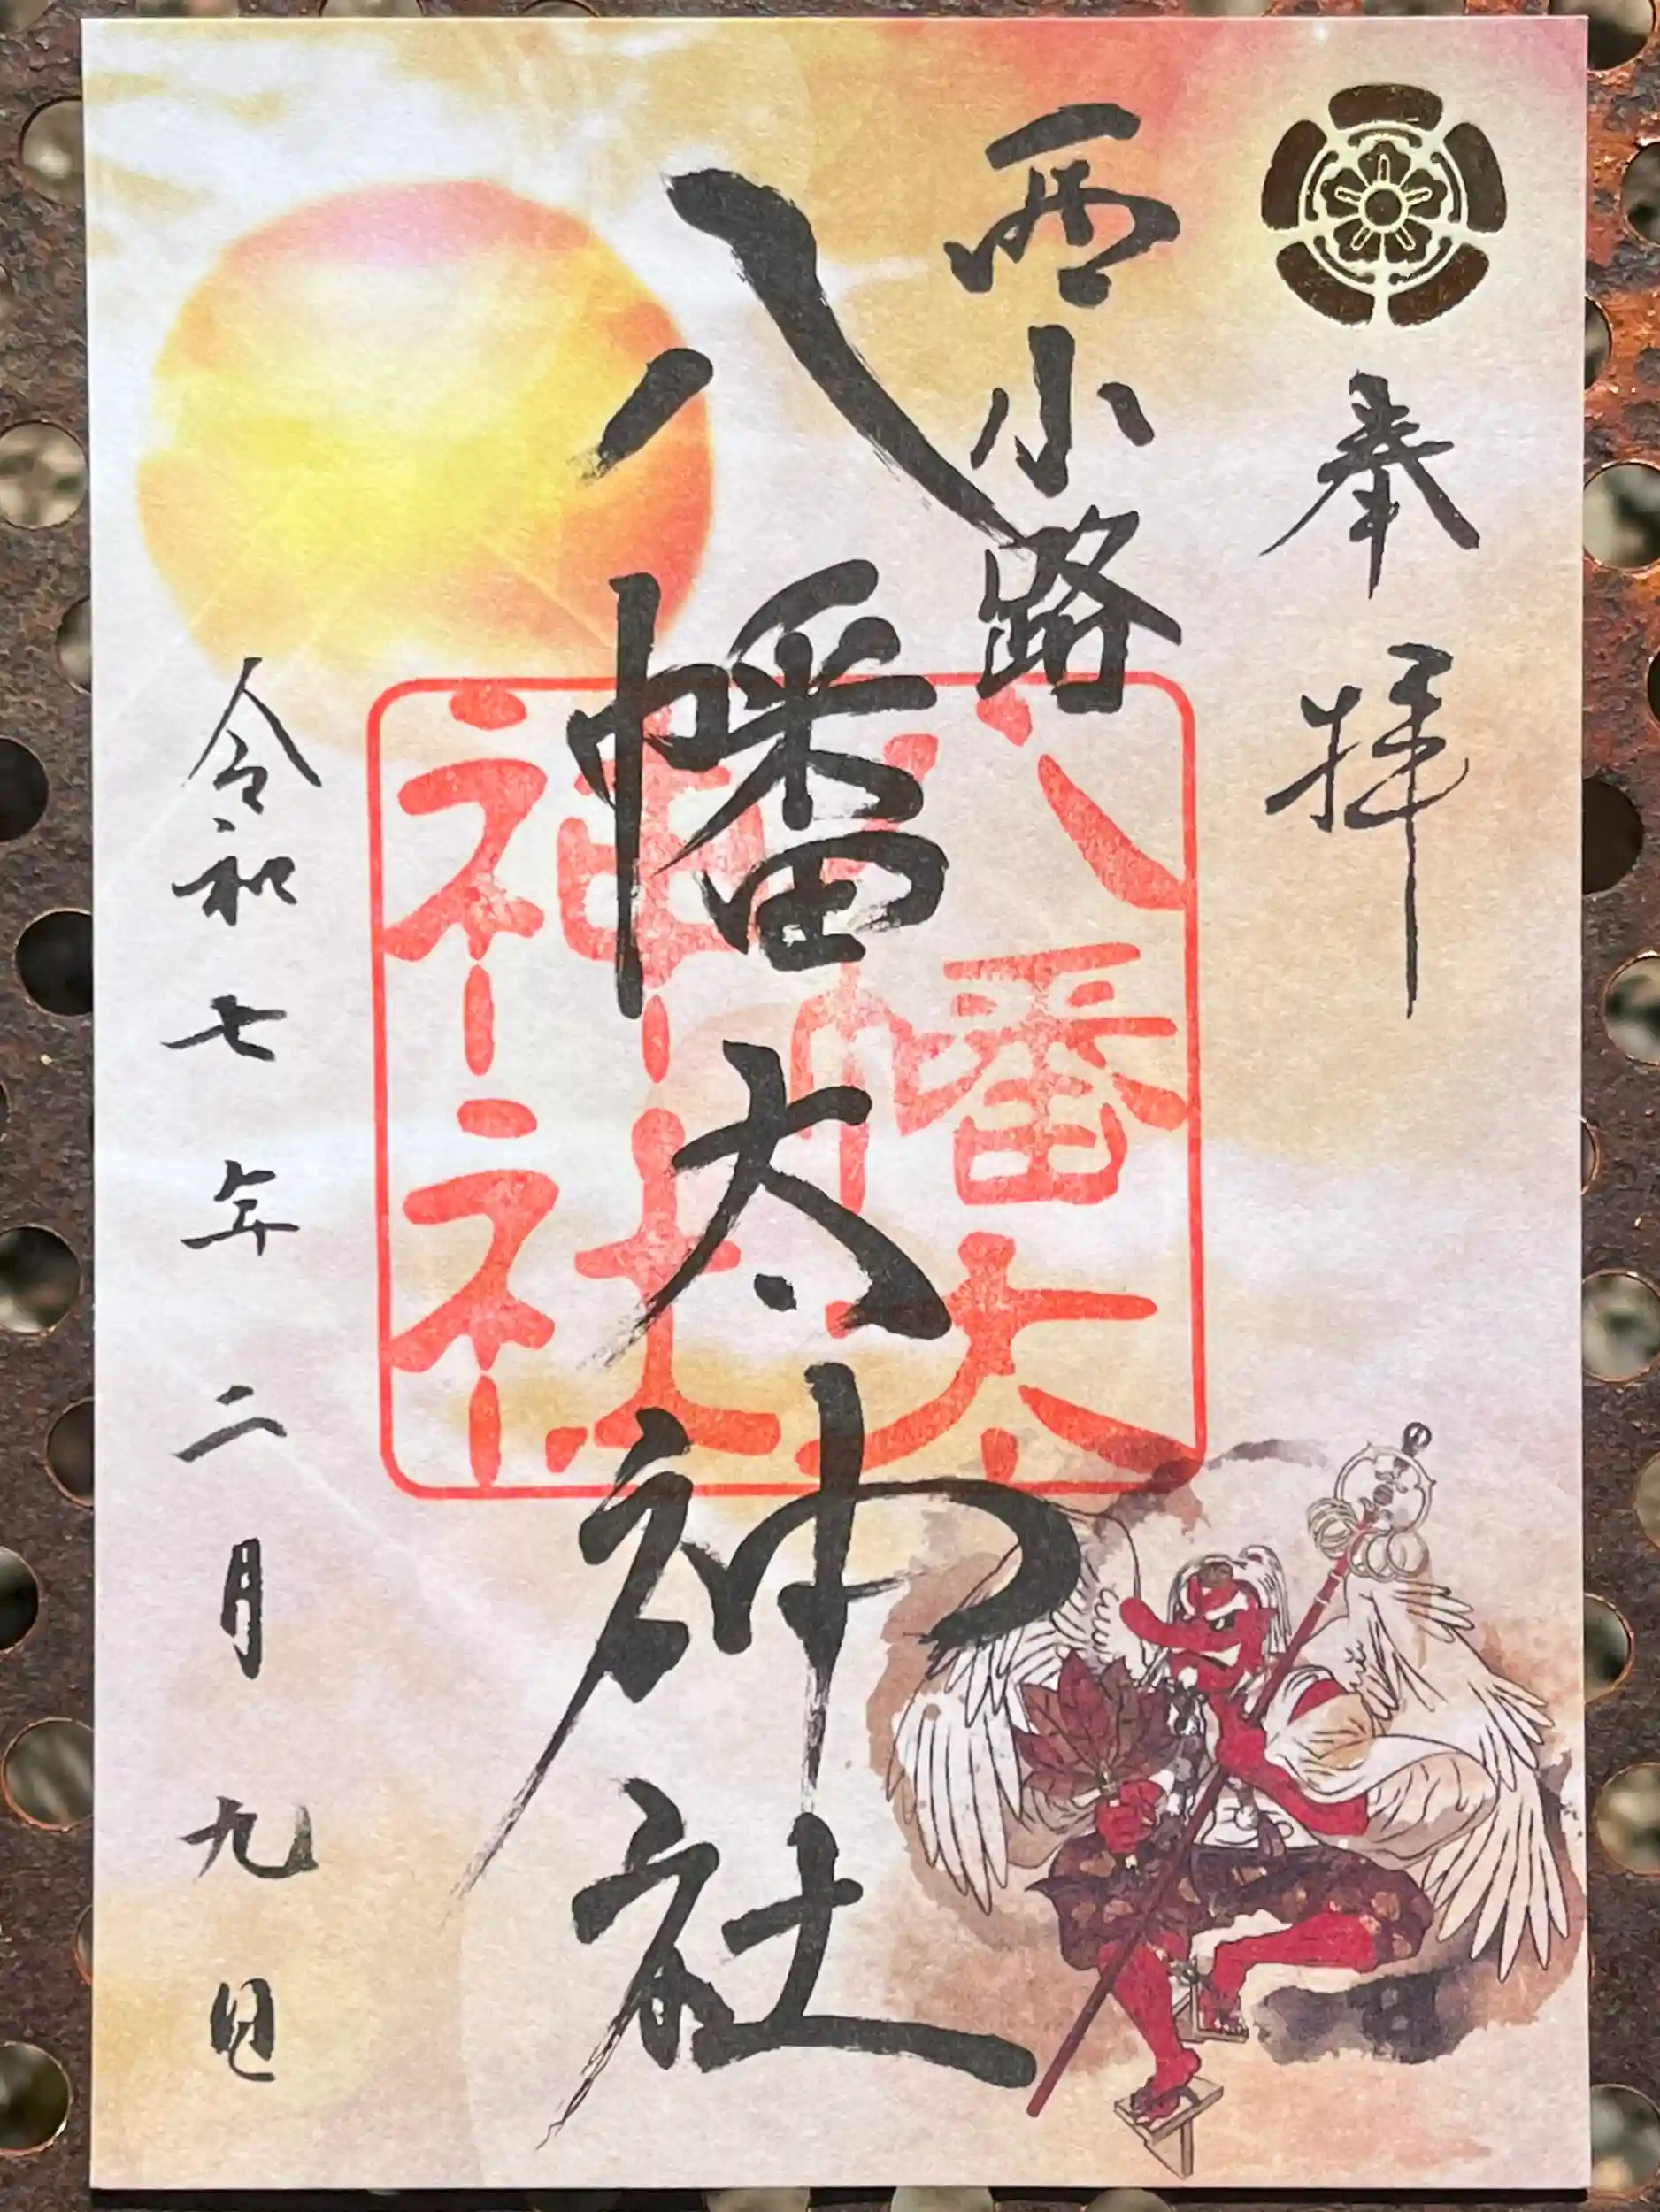 奉拝
西小路
八幡太神社
八幡太
神社
令和七年二月九日